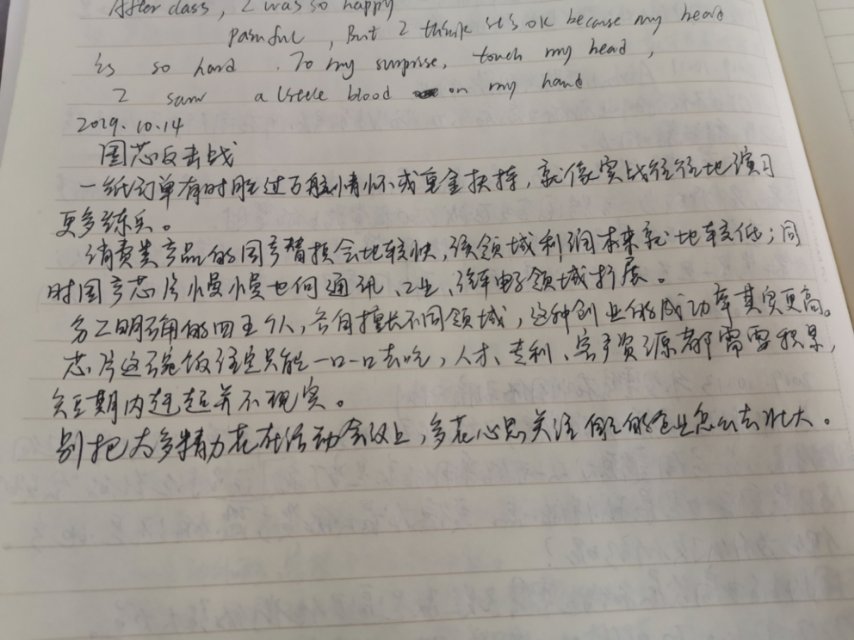 After class, I was so happy
painful, But I think it's ok because my heard
is so hard. To my surprise, touch my head,
I saw a little blood on my hand
2019.10.14
国芯反击战
一纸订单有时胜过万般情怀或重金扶持，就像实战往往比演习
更多练兵。
消费类产品的国产替换会比较快，该领域利润本来就比较低；同
时国产芯片慢慢也向通讯、工业、汽车电子领域拓展。
分工明确的四五个人，各自擅长不同领域，这种创业的成功率其实更高。
芯片这碗饭注定只能一口一口去吃，人才、专利、客户资源都需要积累，
短期内赶超并不现实。
别把太多精力花在活动会议上，多花心思关注自己的企业怎么去壮大。